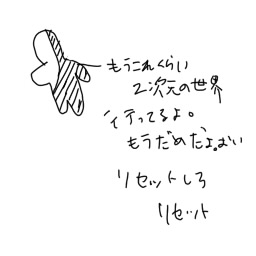 もうこれくらい
2次元の世界
行ってるよ。
もうだめだよ。おい
リセットしろ
リセット